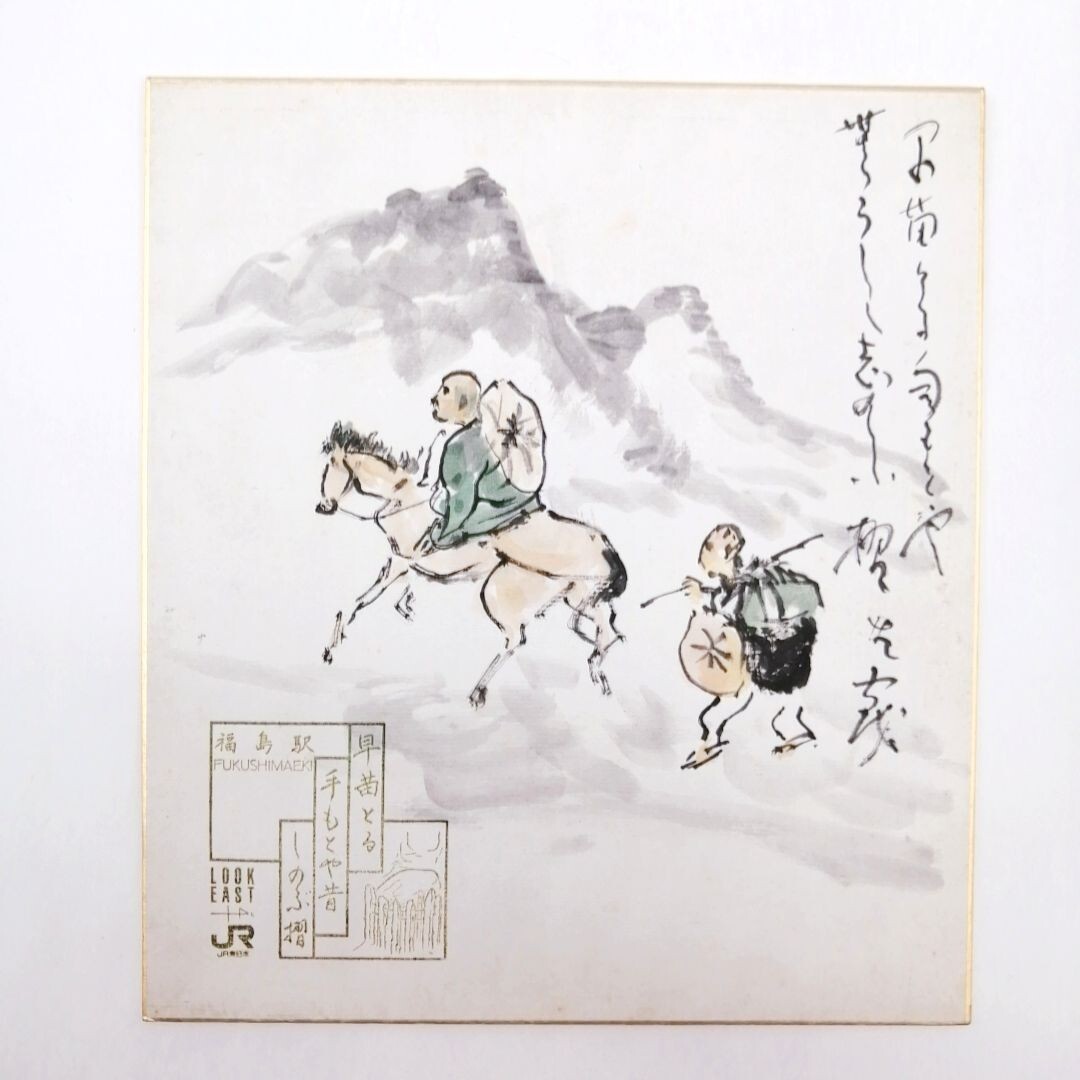 早苗とる手もとや
むかし志のふ摺
福島駅
FUKUSHIMAEKI
早苗とる
手もとや昔
しのぶ摺
LOOK
EAST
JR
JR東日本